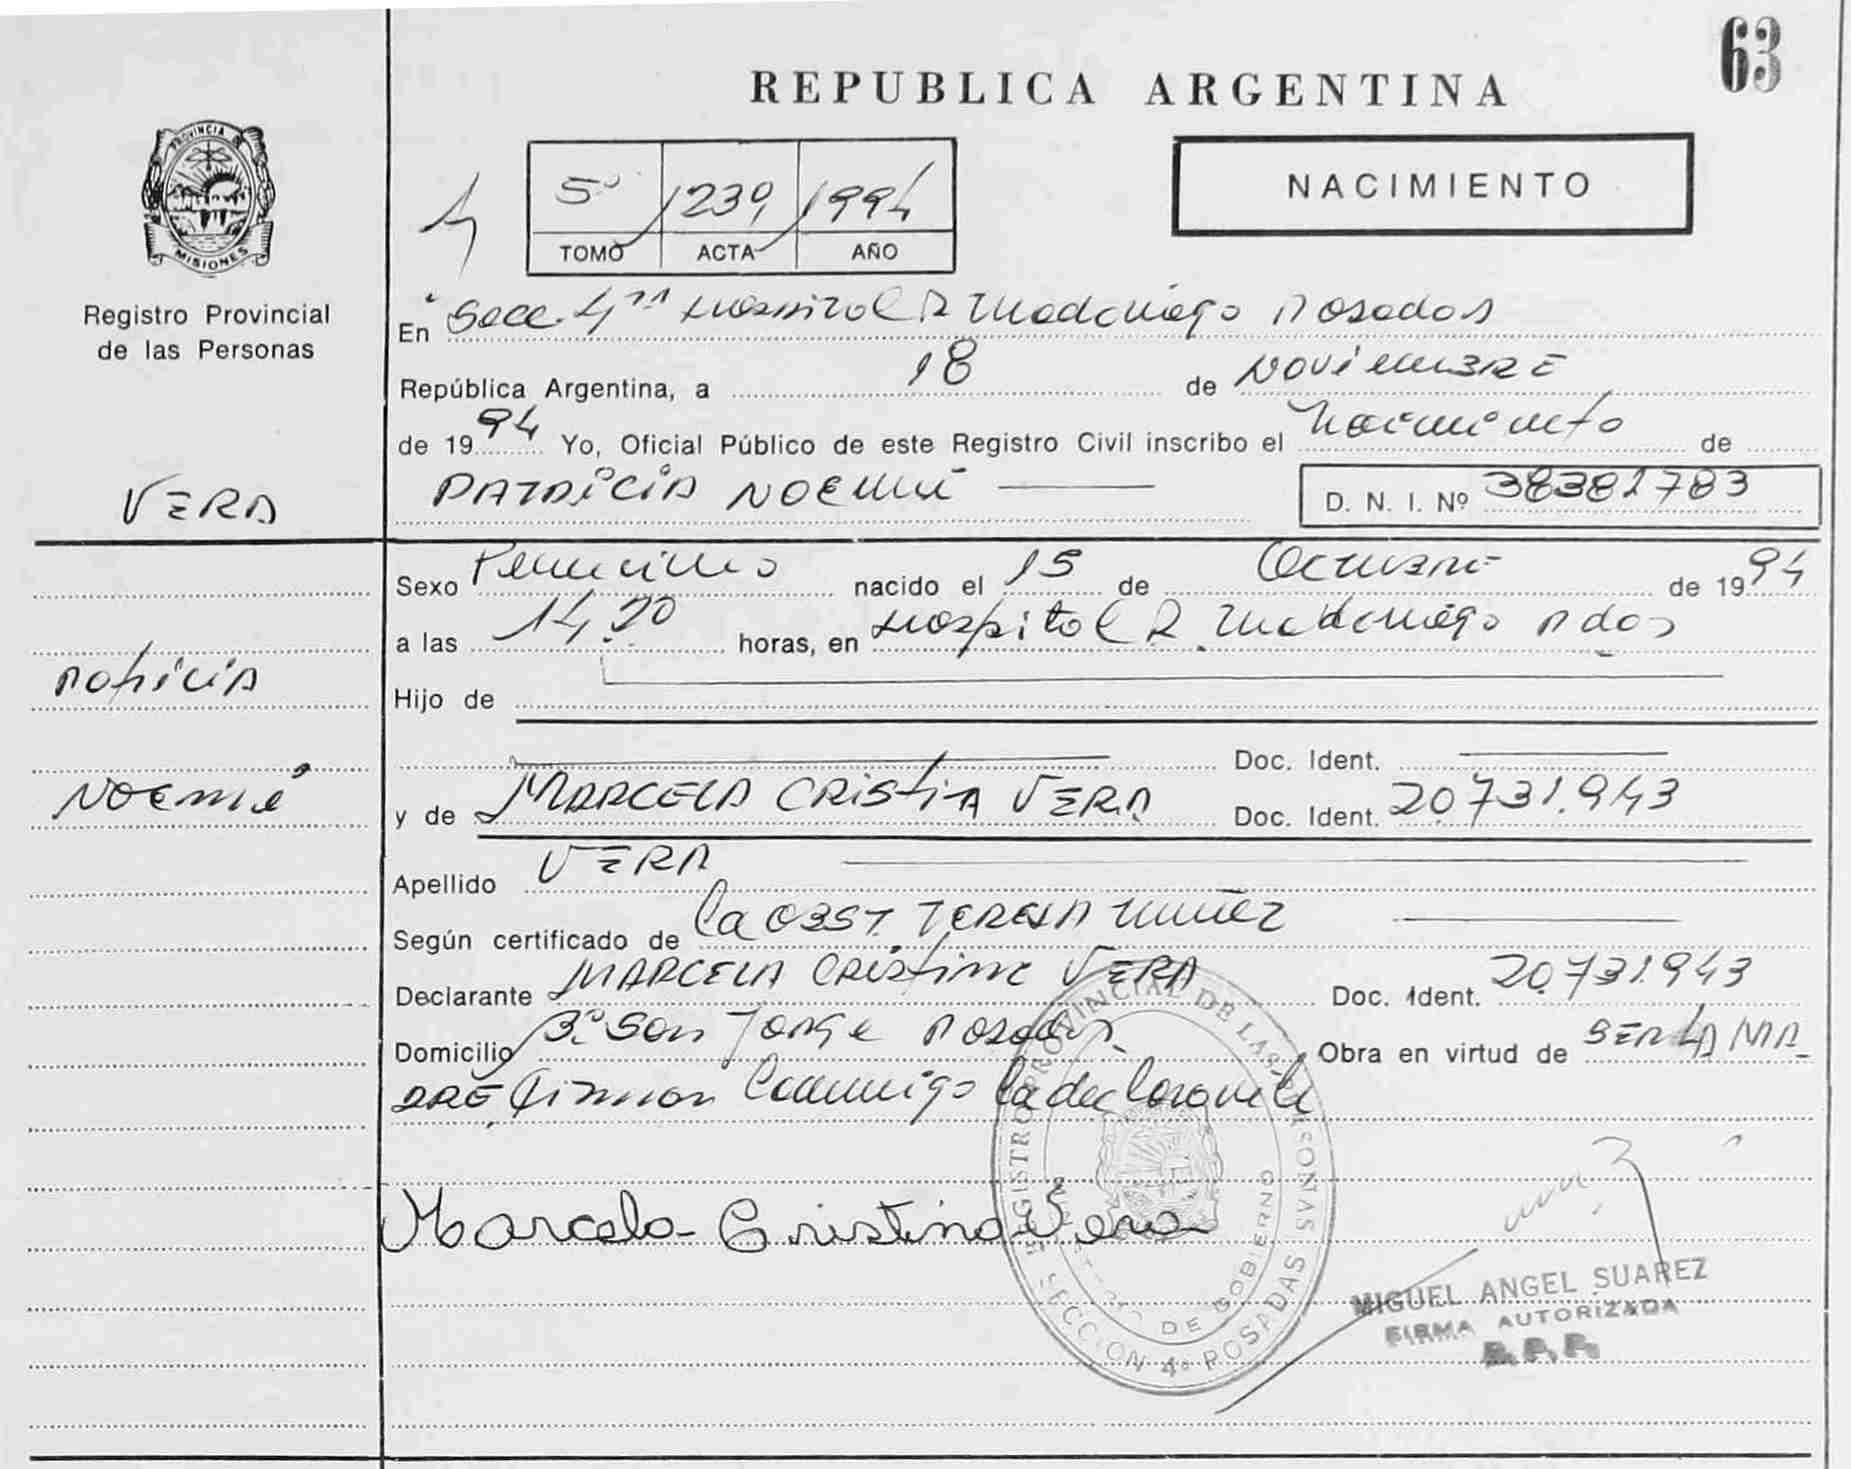 63
REPUBLICA ARGENTINA
PROVINCIA DE
MISIONES
Registro Provincial
de las Personas
5º 1239 1994
TOMO ACTA AÑO
NACIMIENTO
En Secc. 4ta Hospital R Madariaga Posadas
República Argentina, a 18 de NOVIEMBRE
de 1994 Yo, Oficial Público de este Registro Civil inscribo el Nacimiento de
VERA
PATRICIA NOEMI
D. N. I. Nº 38381783
Sexo Femenino nacido el 15 de Octubre de 1994
a las 14,20 horas, en Hospital R. Madariaga Pdas
Patricia
Hijo de
Doc. Ident.
Noemi
y de MARCELA CRISTIA VERA Doc. Ident. 20.731.943
Apellido VERA
Según certificado de la OBST. TERESA NUÑEZ
Declarante MARCELA Cristina VERA Doc. Ident. 20.731.943
Domicilio Bº San Jorge Posadas Obra en virtud de SER LA MA
DRE Firman Conmigo la declarante
Marcela Cristina Vera
REGISTRO PROVINCIAL DE LAS PERSONAS
DE GOBIERNO
SECCION 4º POSADAS
MIGUEL ANGEL SUAREZ
FIRMA AUTORIZADA
R. P. P.